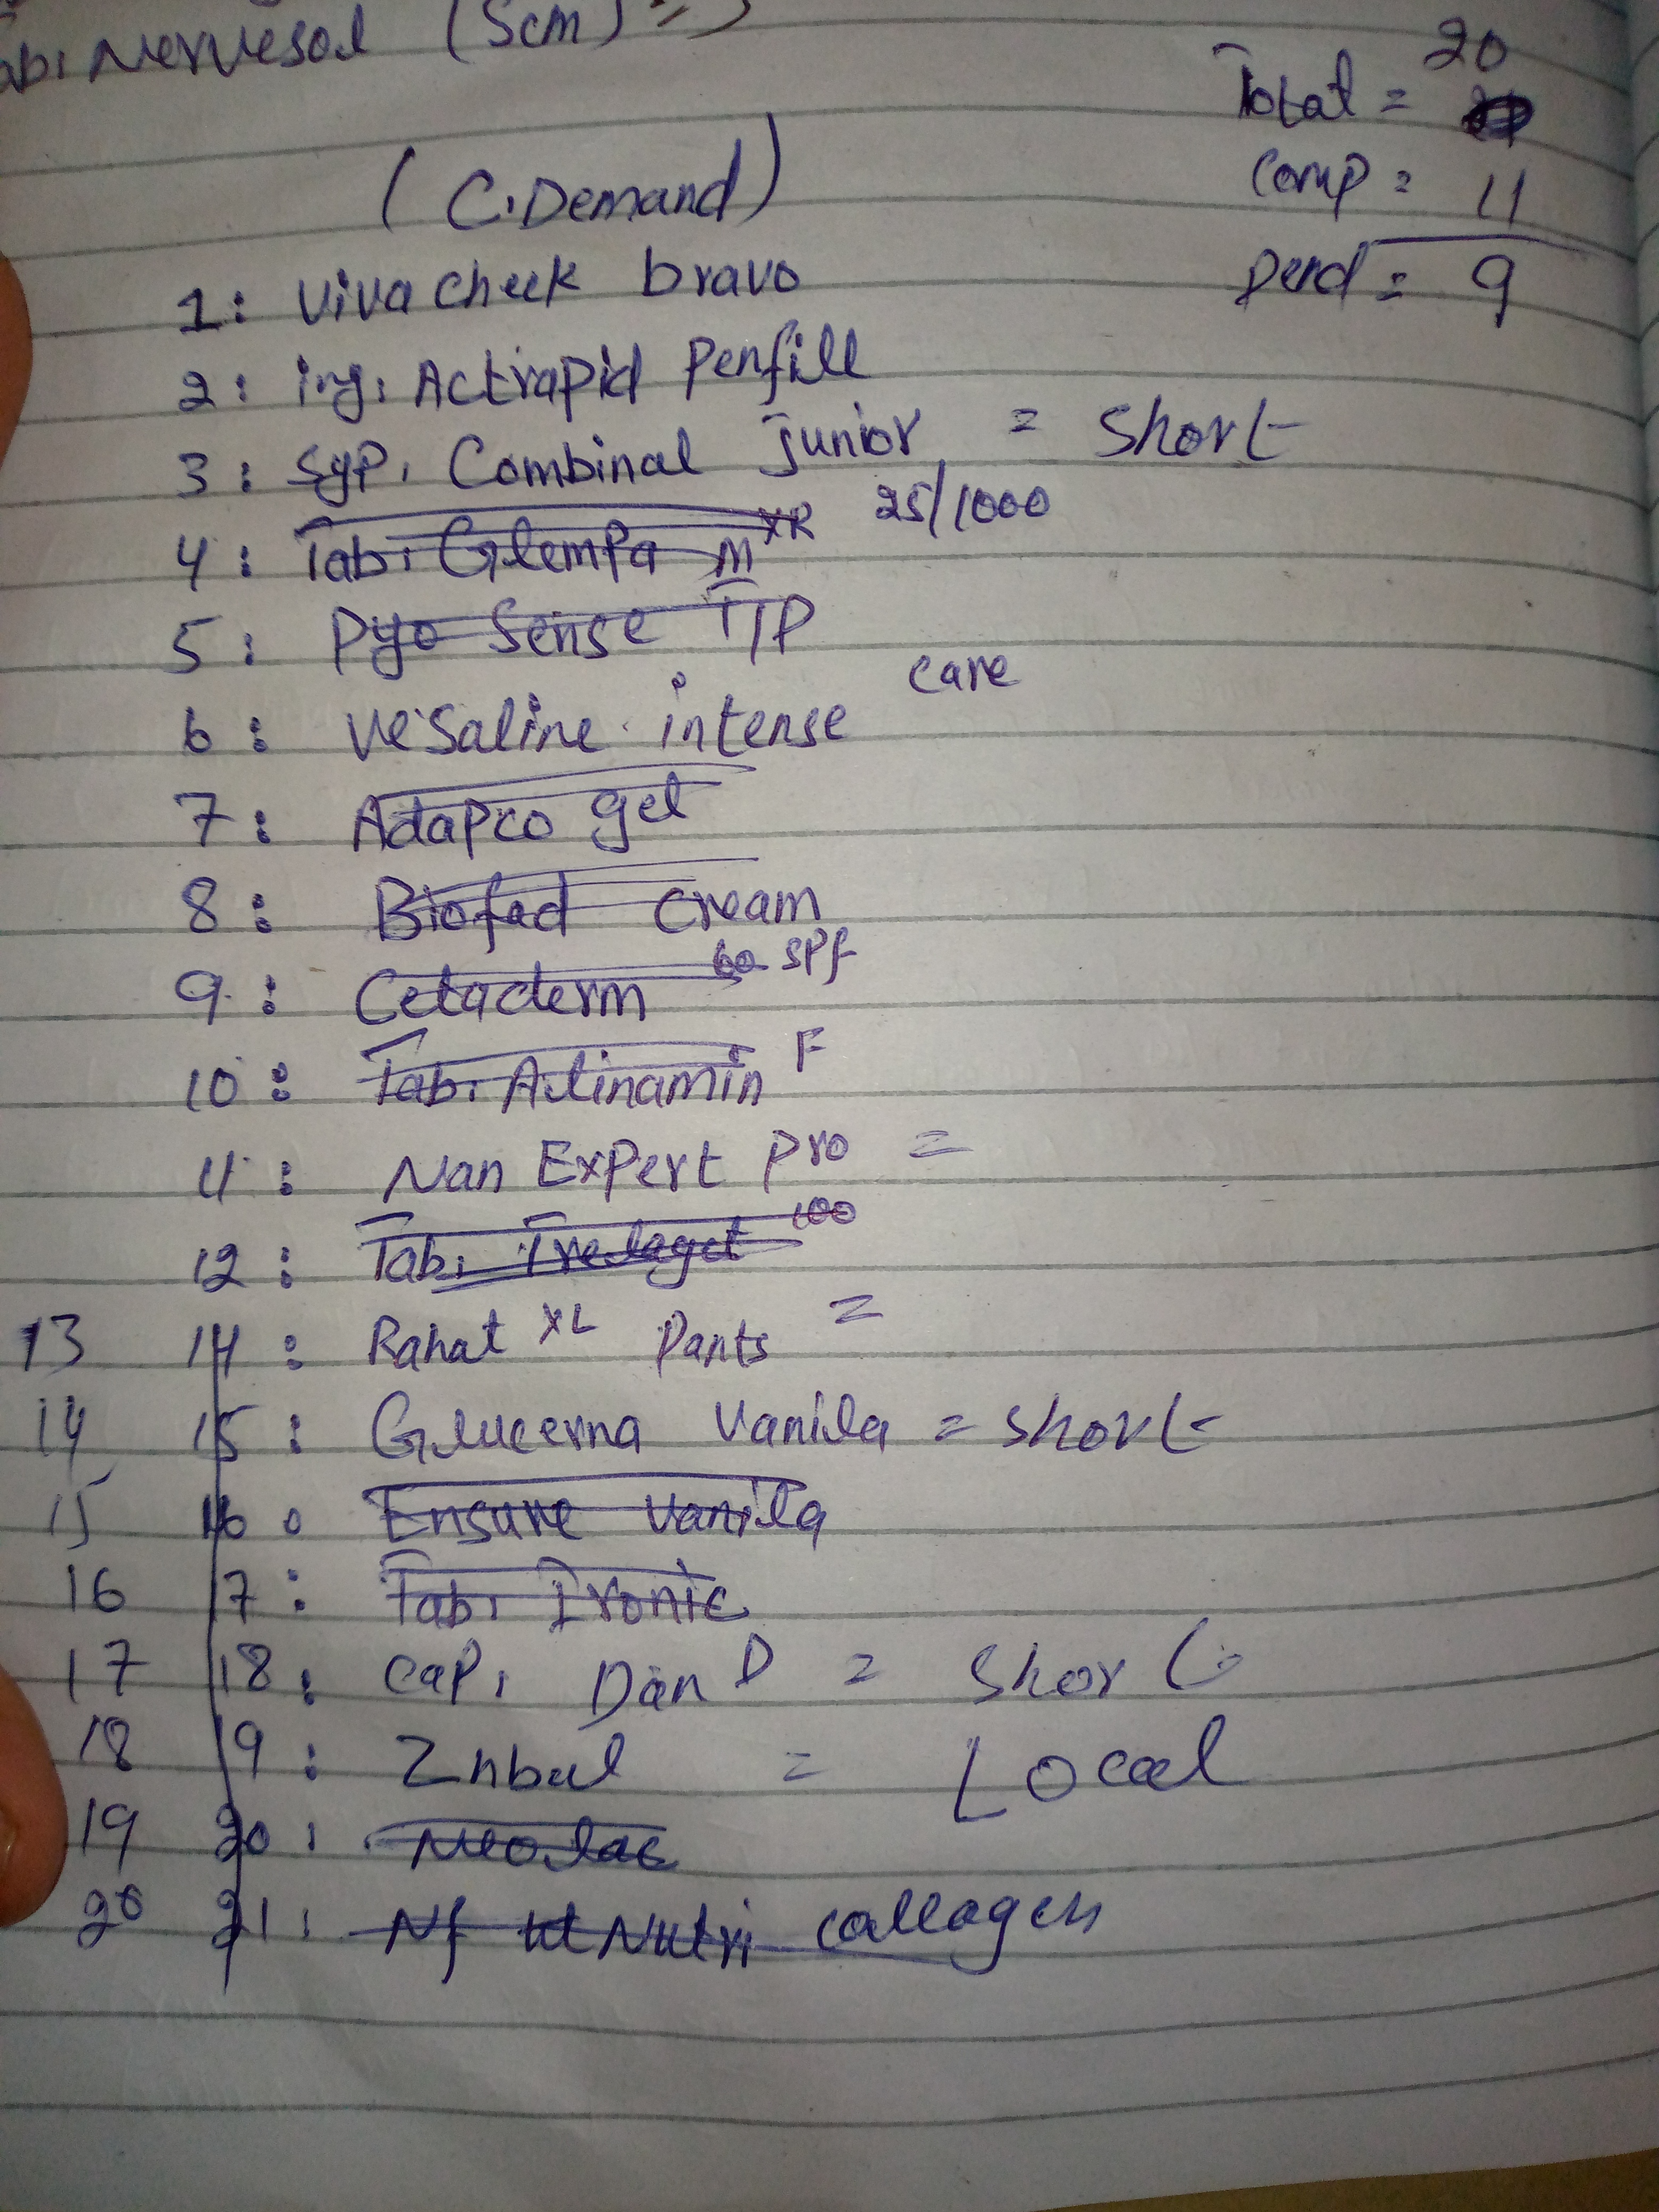 ab, Nervesol (Scm) =>
Total = 20
Comp = 11
Pend = 9
(C. Demand)
1: Viva Cheek bravo
2: inj, Actrapid Penfill
3: Syp, Combinal Junior = Short
4: Tab, Glempa m XR 25/1000
5: Pyo Sense T/P
6: Vesaline intense care
7: Adapco gel
8: Biofad Cream
9: Cetaderm 60 SPf
10: Tab, Alinamin F
11: Nan Expert Pro =
12: Tab, Treleget 100
13 14: Rahat XL Pants =
14 15: Glucerna Vanila = Short
15 16: Ensure Vanila
16 17: Tab, Ironic
17 18: Cap, Dan D = Short
18 19: Znbul = Local
19 20: Neolac
20 21: Nf Nutri collagen